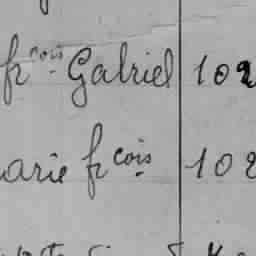 frçois Gabriel 102
arie frcois 102